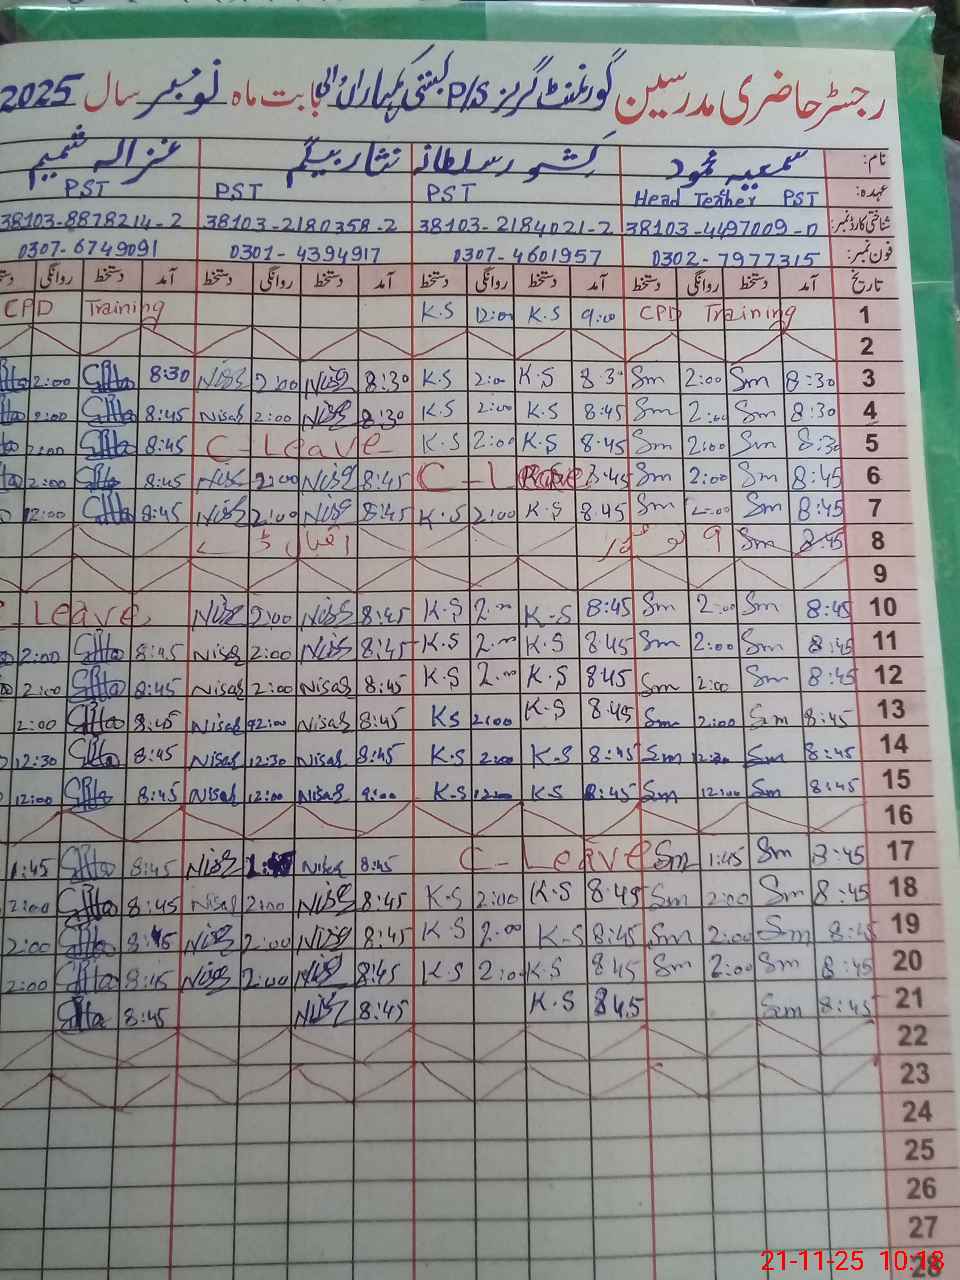 رجسٹر حاضری مدرسین گورنمنٹ گرلز P/S بستی کمہاراں والی بابت ماہ نومبر سال 2025
نام: سمعیہ محمود کشور سلطانہ نثار بیگم غزالہ شمیم
عہدہ: Head Teacher PST PST PST PST
شناختی کارڈ نمبر: 38103-4497009-0 38103-2184021-2 38103-2180358-2 38103-8878214-2
فون نمبر: 0302-7977315 0307-4601957 0301-4394917 0307-6749091
تاریخ آمد دستخط روانگی دستخط آمد دستخط روانگی دستخط آمد دستخط روانگی دستخط آمد دستخط روانگی
1 CPD Training 9:00 K.S 12:00 K.S CPD Training
2
3 8:30 Sm 2:00 Sm 8:30 K.S 2:00 K.S 8:30 Nisa 2:00 Nisa 8:30 2:00
4 8:30 Sm 2:00 Sm 8:45 K.S 2:00 K.S 8:30 Nisa 2:00 Nisa 8:45 2:00
5 8:30 Sm 2:00 Sm 8:45 K.S 2:00 K.S C-Leave 8:45 2:00
6 8:45 Sm 2:00 Sm 8:45 C-Leave 8:45 Nisa 2:00 Nisa 8:45 2:00
7 8:45 Sm 2:00 Sm 8:45 K.S 2:00 K.S 8:45 Nisa 2:00 Nisa 8:45 12:00
8 8:45 Sm 9 نومبر اقبال ڈے
9
10 8:45 Sm 2:00 Sm 8:45 K-S 2:00 K.S 8:45 Nisa 2:00 Nisa C-Leave
11 8:45 Sm 2:00 Sm 8:45 K.S 2:00 K.S 8:45 Nisa 2:00 Nisa 8:45 2:00
12 8:45 Sm 2:00 Sm 8:45 K.S 2:00 K.S 8:45 Nisa 2:00 Nisa 8:45 2:00
13 8:45 Sm 2:00 Sm 8:45 K.S 2:00 KS 8:45 Nisa 2:00 Nisa 8:45 2:00
14 8:45 Sm 12:30 Sm 8:45 K.S 2:00 K.S 8:45 Nisa 12:30 Nisa 8:45 12:30
15 8:45 Sm 12:00 Sm 8:45 K.S 12:00 K.S 9:00 Nisa 12:00 Nisa 8:45 12:00
16
17 8:45 Sm 1:45 Sm C-Leave 8:45 Nisa 1:45 Nisa 8:45 1:45
18 8:45 Sm 2:00 Sm 8:45 K.S 2:00 K.S 8:45 Nisa 2:00 Nisa 8:45 2:00
19 8:45 Sm 2:00 Sm 8:45 K-S 2:00 K.S 8:45 Nisa 2:00 Nisa 8:45 2:00
20 8:45 Sm 2:00 Sm 8:45 K.S 2:00 K.S 8:45 Nisa 2:00 Nisa 8:45 2:00
21 8:45 Sm 8:45 K.S 8:45 Nisa 8:45
22
23
24
25
26
27
28
21-11-25 10:18